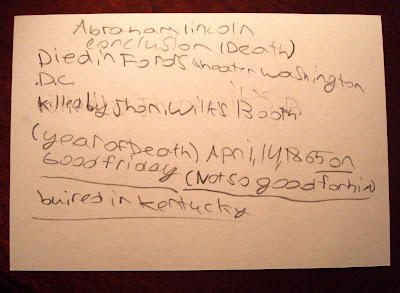 Abraham lincoln
conclusion (Death)
Died in Ford's sheater washington
.D.C
killed by Jhon, Wilk's Booth
(year of Death) April, 14, 1865 on
Good friday (Not so good for him)
buired in kentucky